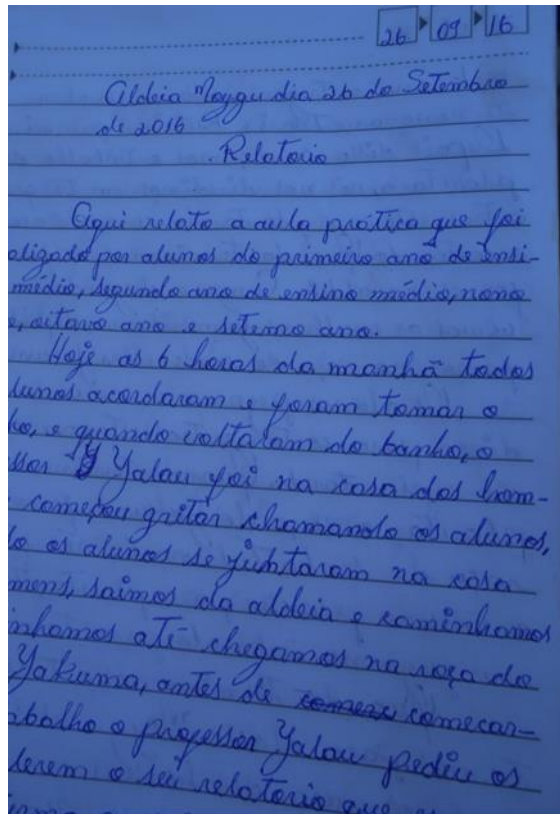 26 09 16
Aldeia Moygu dia 26 do Setembro
de 2016
Relatorio
Aqui relato a aula prática que foi
aligado por alunos do primeiro ano de ensi-
médio, segundo ano de ensino médio, nono
, oitavo ano e sétemo ano.
Hoje as 6 horas da manhã todos
lunos acordaram e foram tomar o
ho, e quando voltaram do banho, o
ssor Yalau foi na casa dos hom-
começou gritar chamando os alunos,
do os alunos se juhtaram na casa
mens, saimos da aldeia e caminhamos
inhamos até chegamos na roça do
Yakuma, antes de comecar-
abalho o professor Yalau pediu os
derem o seu relatorio que